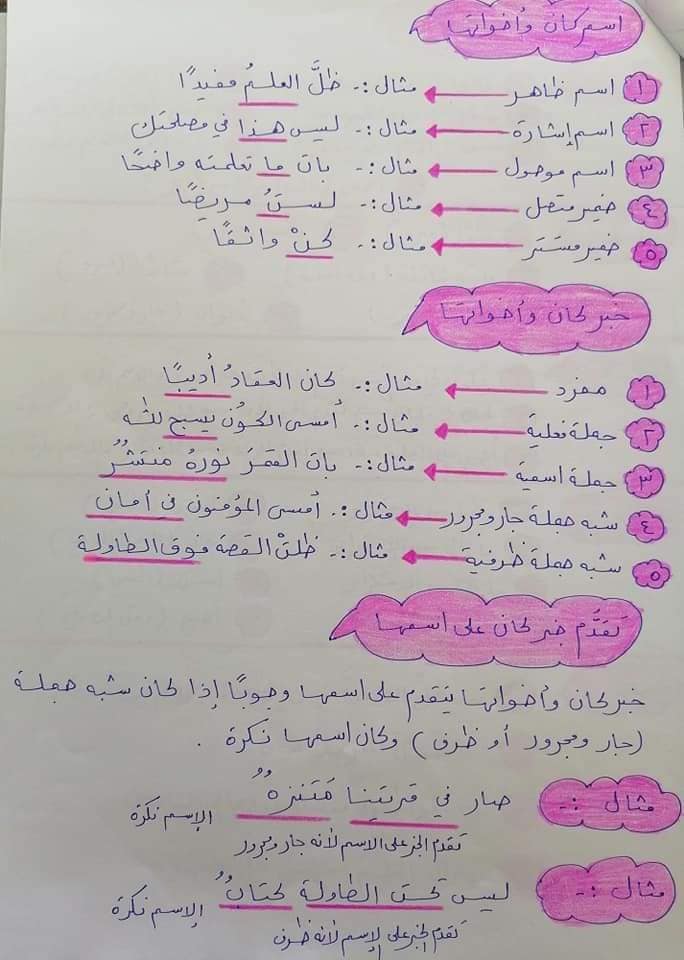 اسم كان وأخواتها
١ اسم ظاهر مثال :- ظلَّ العلمُ مفيدًا
٢ اسم إشارة مثال :- ليس هذا في مصلحتك
٣ اسم موصول مثال :- بات ما تعلمته واضحًا
٤ ضمير متصل مثال :- لستُ مريضًا
٥ ضمير مستتر مثال :- كنْ واثقًا
خبر كان وأخواتها
١ مفرد مثال :- كان العقادُ أديبًا
٢ جملة فعلية مثال :- أمسى الكونُ يسبح لله
٣ جملة اسمية مثال :- بات القمرَ نورهُ منتشرٌ
٤ شبه جملة جار ومجرور مثال :- أمسى المؤمنون في أمان
٥ شبه جملة ظرفية مثال :- ظلتْ القصة فوق الطاولة
تقدَّم خبر كان على اسمها
خبر كان وأخواتها يتقدم على اسمها وجوبًا إذا كان شبه جملة
(جار ومجرور أو ظرف) وكان اسمها نكرة .
مثال :- صار في قريتنا مَتنزهٌ الإسم نكرة
تقدم الخبر على الاسم لأنه جار ومجرور
مثال :- ليس تحت الطاولة كتابٌ الإسم نكرة
تقدم الخبر على الإسم لأنه ظرف